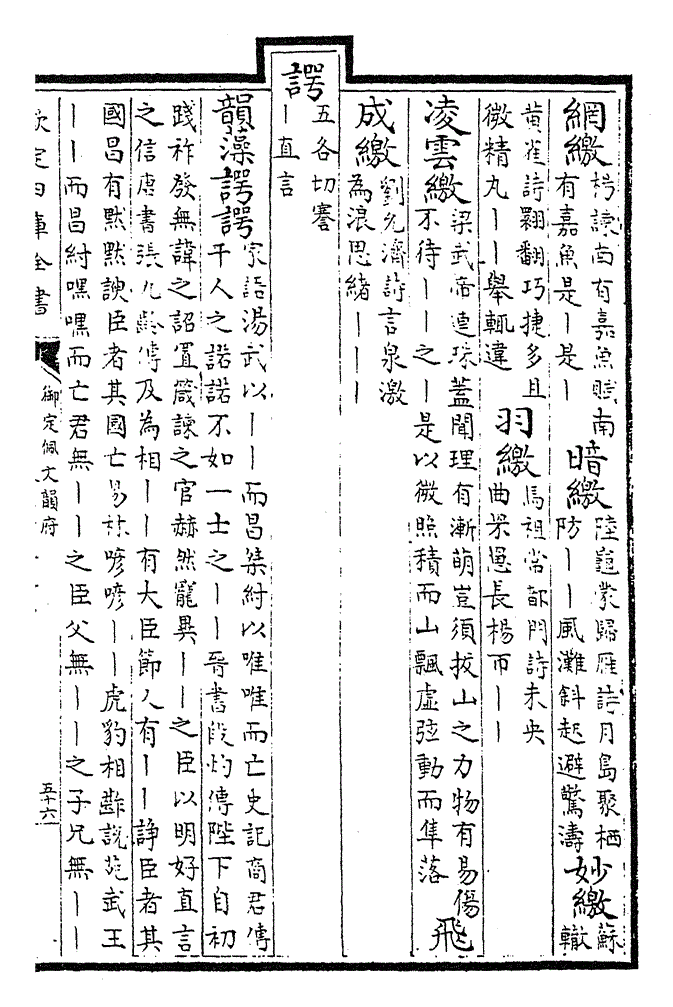 網繳 楊諫南有嘉魚賦南
有嘉魚是｜是｜
暗繳 陸龜蒙歸雁詩月島聚栖
防｜｜風灘斜起避驚濤
妙繳 蘇
轍
黄雀詩翾翻巧捷多且
微精丸｜｜舉輒違
羽繳 馬祖常都門詩未央
曲罘罳長楊帀｜｜
凌雲繳 梁武帝連珠蓋聞理有漸萌豈須拔山之力物有易傷
不待｜｜之｜是以微照積而山飄虛弦動而隼落
飛
成繳 劉允濟詩言泉激
為浪思緒｜｜｜
諤 五各切謇
｜直言
韻藻諤諤 家語湯武以｜｜而昌桀紂以唯唯而亡史記商君傳
千人之諾諾不如一士之｜｜晉書段灼傳陛下自初
踐祚發無諱之詔置箴諫之官赫然寵異｜｜之臣以明好直言
之信唐書張九齡傳及為相｜｜有大臣節人有｜｜諍臣者其
國昌有默默諛臣者其國亡易林喭喭｜｜虎豹相齰說苑武王
｜｜而昌紂嘿嘿而亡君無｜｜之臣父無｜｜之子兄無｜｜
欽定四庫全書
御定佩文韻府
五十六